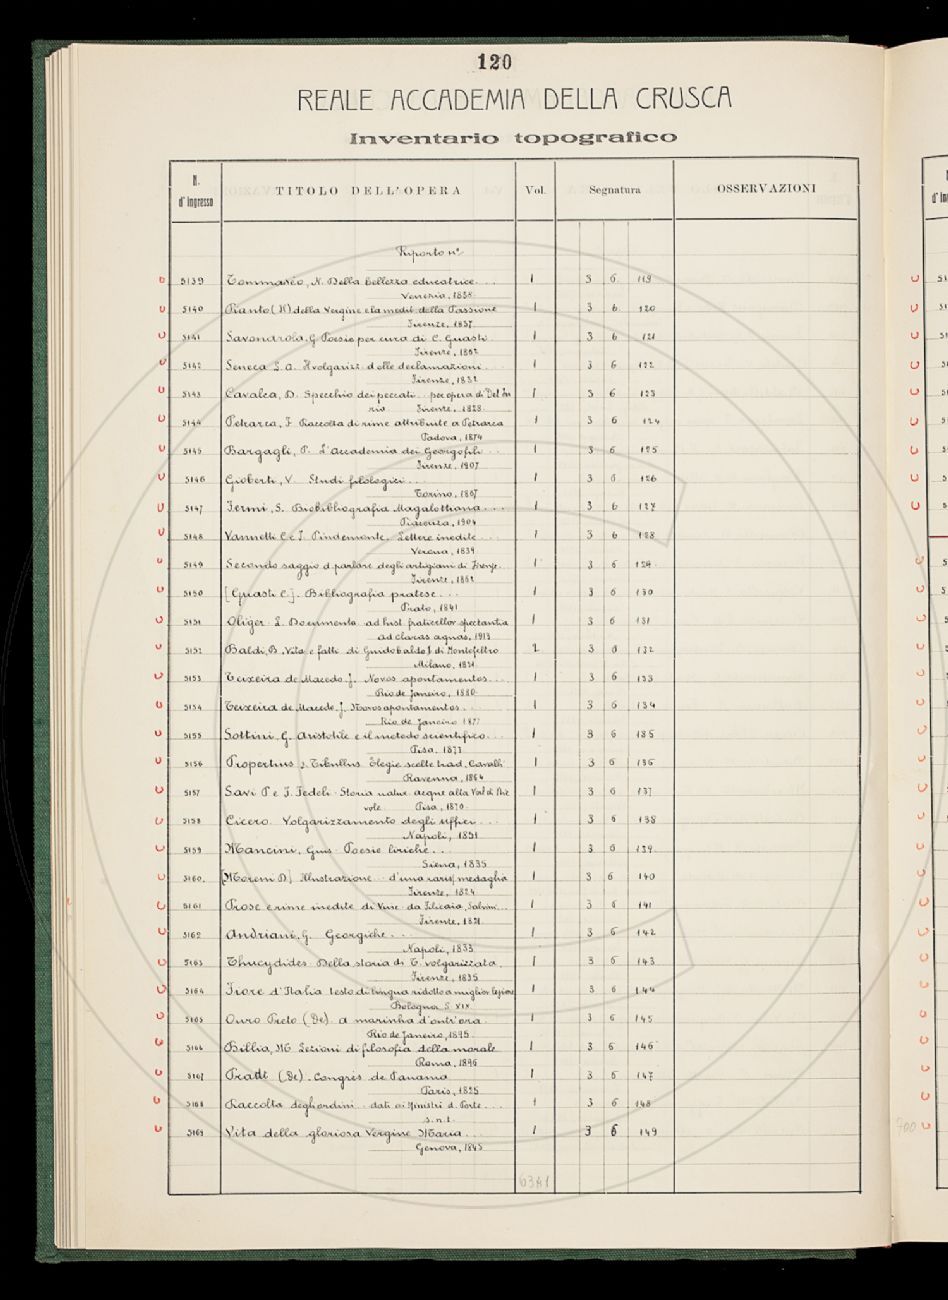 120
REALE ACCADEMIA DELLA CRUSCA
Inventario topografico
N. d'ingresso TITOLO DELL'OPERA Vol. Segnatura OSSERVAZIONI
Riporto n°
5139 Tommaséo, N. Della bellezza educatrice... 1 3 6 119
Venezia, 1838
5140 Pianto (Il) della Vergine e la medit. della Passione 1 3 6 120
Firenze, 1837
5141 Savonarola, G. Poesie per cura di C. Guasti. 1 3 6 121
Firenze, 1862
5142 Seneca L. A. Il volgarizz. delle declamazioni... 1 3 6 122
Firenze, 1832
5143 Cavalca, D. Specchio dei peccati... per opera di Del Fu 1 3 6 123
ria Firenze, 1828
5144 Petrarca, F. Raccolta di rime attribuite a Petrarca 1 3 6 124
Padova, 1874
5145 Bargagli, P. L'Accademia dei Georgofili... 1 3 6 125
Firenze, 1907
5146 Gioberti, V. Studi filologici... 1 3 6 126
Torino, 1867
5147 Fermi, S. Biobibliografia Magalottiana... 1 3 6 127
Piacenza, 1904
5148 Vannetti C. e I. Pindemonte. Lettere inedite... 1 3 6 128
Verona, 1839
5149 Secondo saggio d. parlare degli artigiani di Firenze. 1 3 6 129
Firenze, 1861
5150 [Guasti C.]. Bibliografia pratese... 1 3 6 130
Prato, 1841
5151 Oliger L. Documenta ad hist. fraticellor. spectantia 1 3 6 131
ad claras aquas, 1913
5152 Baldi, B. Vita e fatti di Guidobaldo I. di Montefeltro 2 3 6 132
Milano, 1821
5153 Teixeira de Macedo J. Novos apontamentos... 1 3 6 133
Rio de Janeiro, 1880
5154 Teixeira de Macedo J. Novos apontamentos... 1 3 6 134
Rio de Janeiro 1877
5155 Sottini, G. Aristotile e il metodo scientifico... 1 3 6 135
Pisa, 1873
5156 Propertius e Tibullus Elegie scelte trad. Cavalli 1 3 6 136
Ravenna, 1864
5157 Savi P. e F. Fedeli. Storia natur. acque alla Val di Nie 1 3 6 137
vole Pisa, 1870
5158 Cicero. Volgarizzamento degli Uffici... 1 3 6 138
Napoli, 1851
5159 Mancini, Gius. Poesie liriche... 1 3 6 139
Siena, 1835
5160. [Moreni D.] Illustrazione... d'una rariss. medaglia 1 3 6 140
Firenze, 1824
5161 Prose e rime inedite di Vinc. da Filicaia, Salvini... 1 3 6 141
Firenze, 1821
5162 Andriani, G. Georgiche... 1 3 6 142
Napoli, 1833
5163 Thucydides. Della storia di T. volgarizzata. 1 3 6 143
Firenze, 1835
5164 Fiore d'Italia testo di lingua ridotto a miglior lezione 1 3 6 144
Bologna S. XIX
5165 Ouro Preto (De). a marinha d'outr'ora. 1 3 6 145
Rio de Janeiro, 1895
5166 Billia, M. Lezioni di filosofia della morale 1 3 6 146
Roma, 1896
5167 Pradt (De). Congrès de Panama 1 3 6 147
Paris, 1825
5168 Raccolta degli ordini... dati ai Ministri d. Porte... 1 3 6 148
s.n.t.
5169 Vita della gloriosa Vergine Maria... 1 3 6 149
Genova, 1843